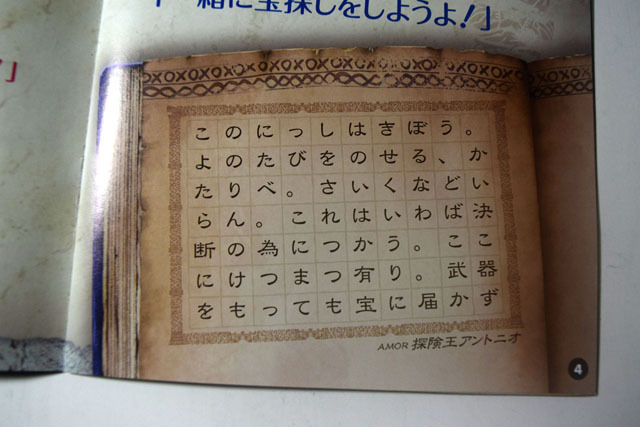 一緒に宝探しをしようよ！」
」
このにっしはきぼう。
よのたびをのせる、か
たりべ。さいくなどい
らん。これはいわば決
断の為につかう。ここ
にけつまつ有り。武器
をもっても宝に届かず
AMOR 探険王アントニオ
4